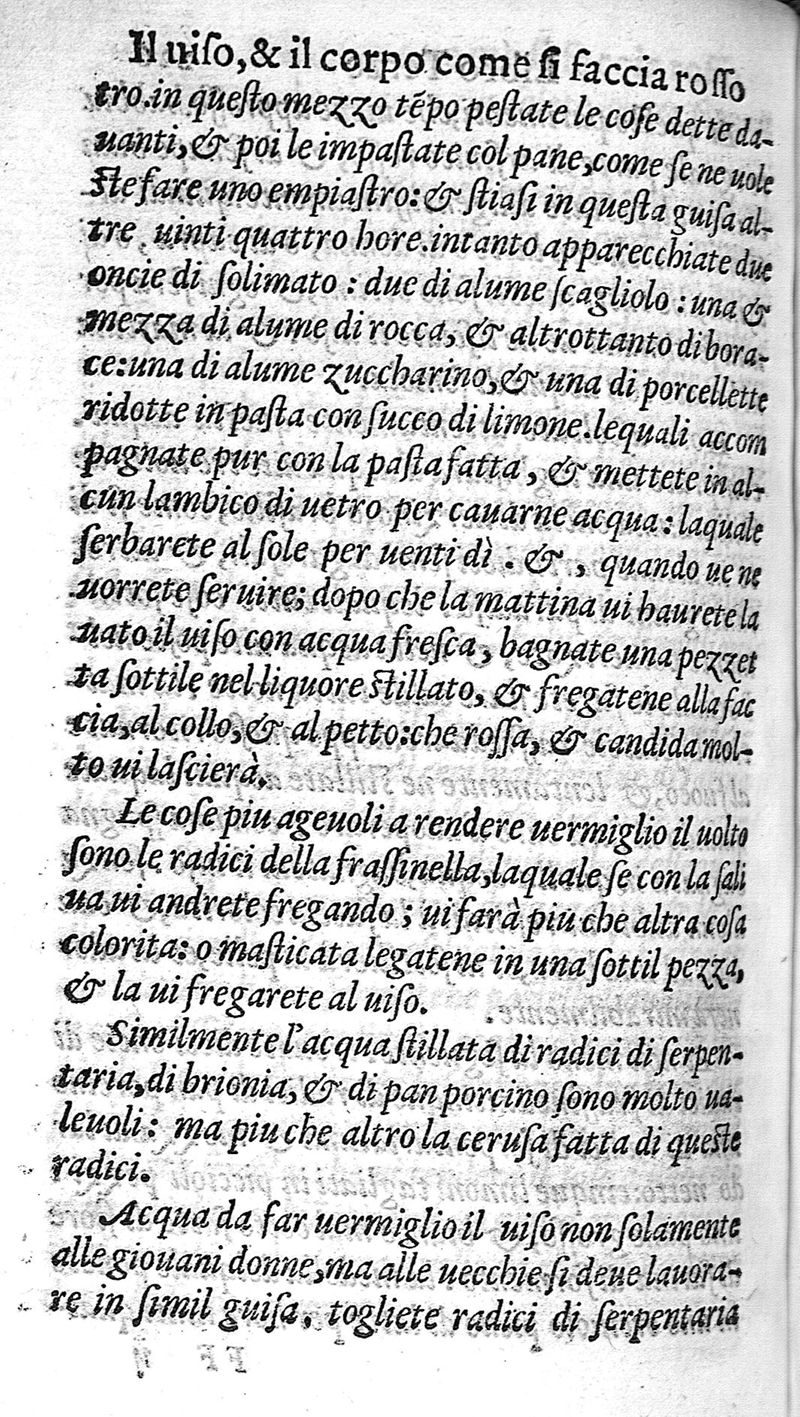 Il uiſo, & il corpo come ſi faccia roſſo
tro. in queſto mezzo tẽpo peſtate le coſe dette da-
uanti, & poi le impaſtate col pane, come ſe ne uole
ſte fare uno empiaſtro: & ſtiaſi in queſta guiſa al-
tre uinti quattro hore. intanto apparecchiate due
oncie di ſolimato : due di alume ſcagliolo : una &
mezza di alume di rocca, & altrottanto di bora-
ce: una di alume zuccharino, & una di porcellette
ridotte in paſta con ſucco di limone. lequali accom
pagnate pur con la paſta fatta, & mettete in al-
cun lambico di uetro per cauarne acqua : laquale
ſerbarete al ſole per uenti dì . & , quando ue ne
uorrete ſeruire; dopo che la mattina ui haurete la
uato il uiſo con acqua freſca, bagnate una pezzet
ta ſottile nel liquore ſtillato, & fregatene alla fac
cia, al collo, & al petto: che roſſa, & candida mol-
to ui laſcierà.
Le coſe piu ageuoli a rendere uermiglio il uolto
ſono le radici della fraſſinella, laquale ſe con la ſali
ua ui andrete fregando ; ui farà piu che altra coſa
colorita: o maſticata legatene in una ſottil pezza,
& la ui fregarete al uiſo.
Similmente l'acqua ſtillata di radici di ſerpen-
taria, di brionia, & di pan porcino ſono molto ua-
leuoli : ma piu che altro la ceruſa fatta di queſte
radici.
Acqua da far uermiglio il uiſo non ſolamente
alle giouani donne, ma alle uecchie ſi deue lauora-
re in ſimil guiſa, togliete radici di ſerpentaria